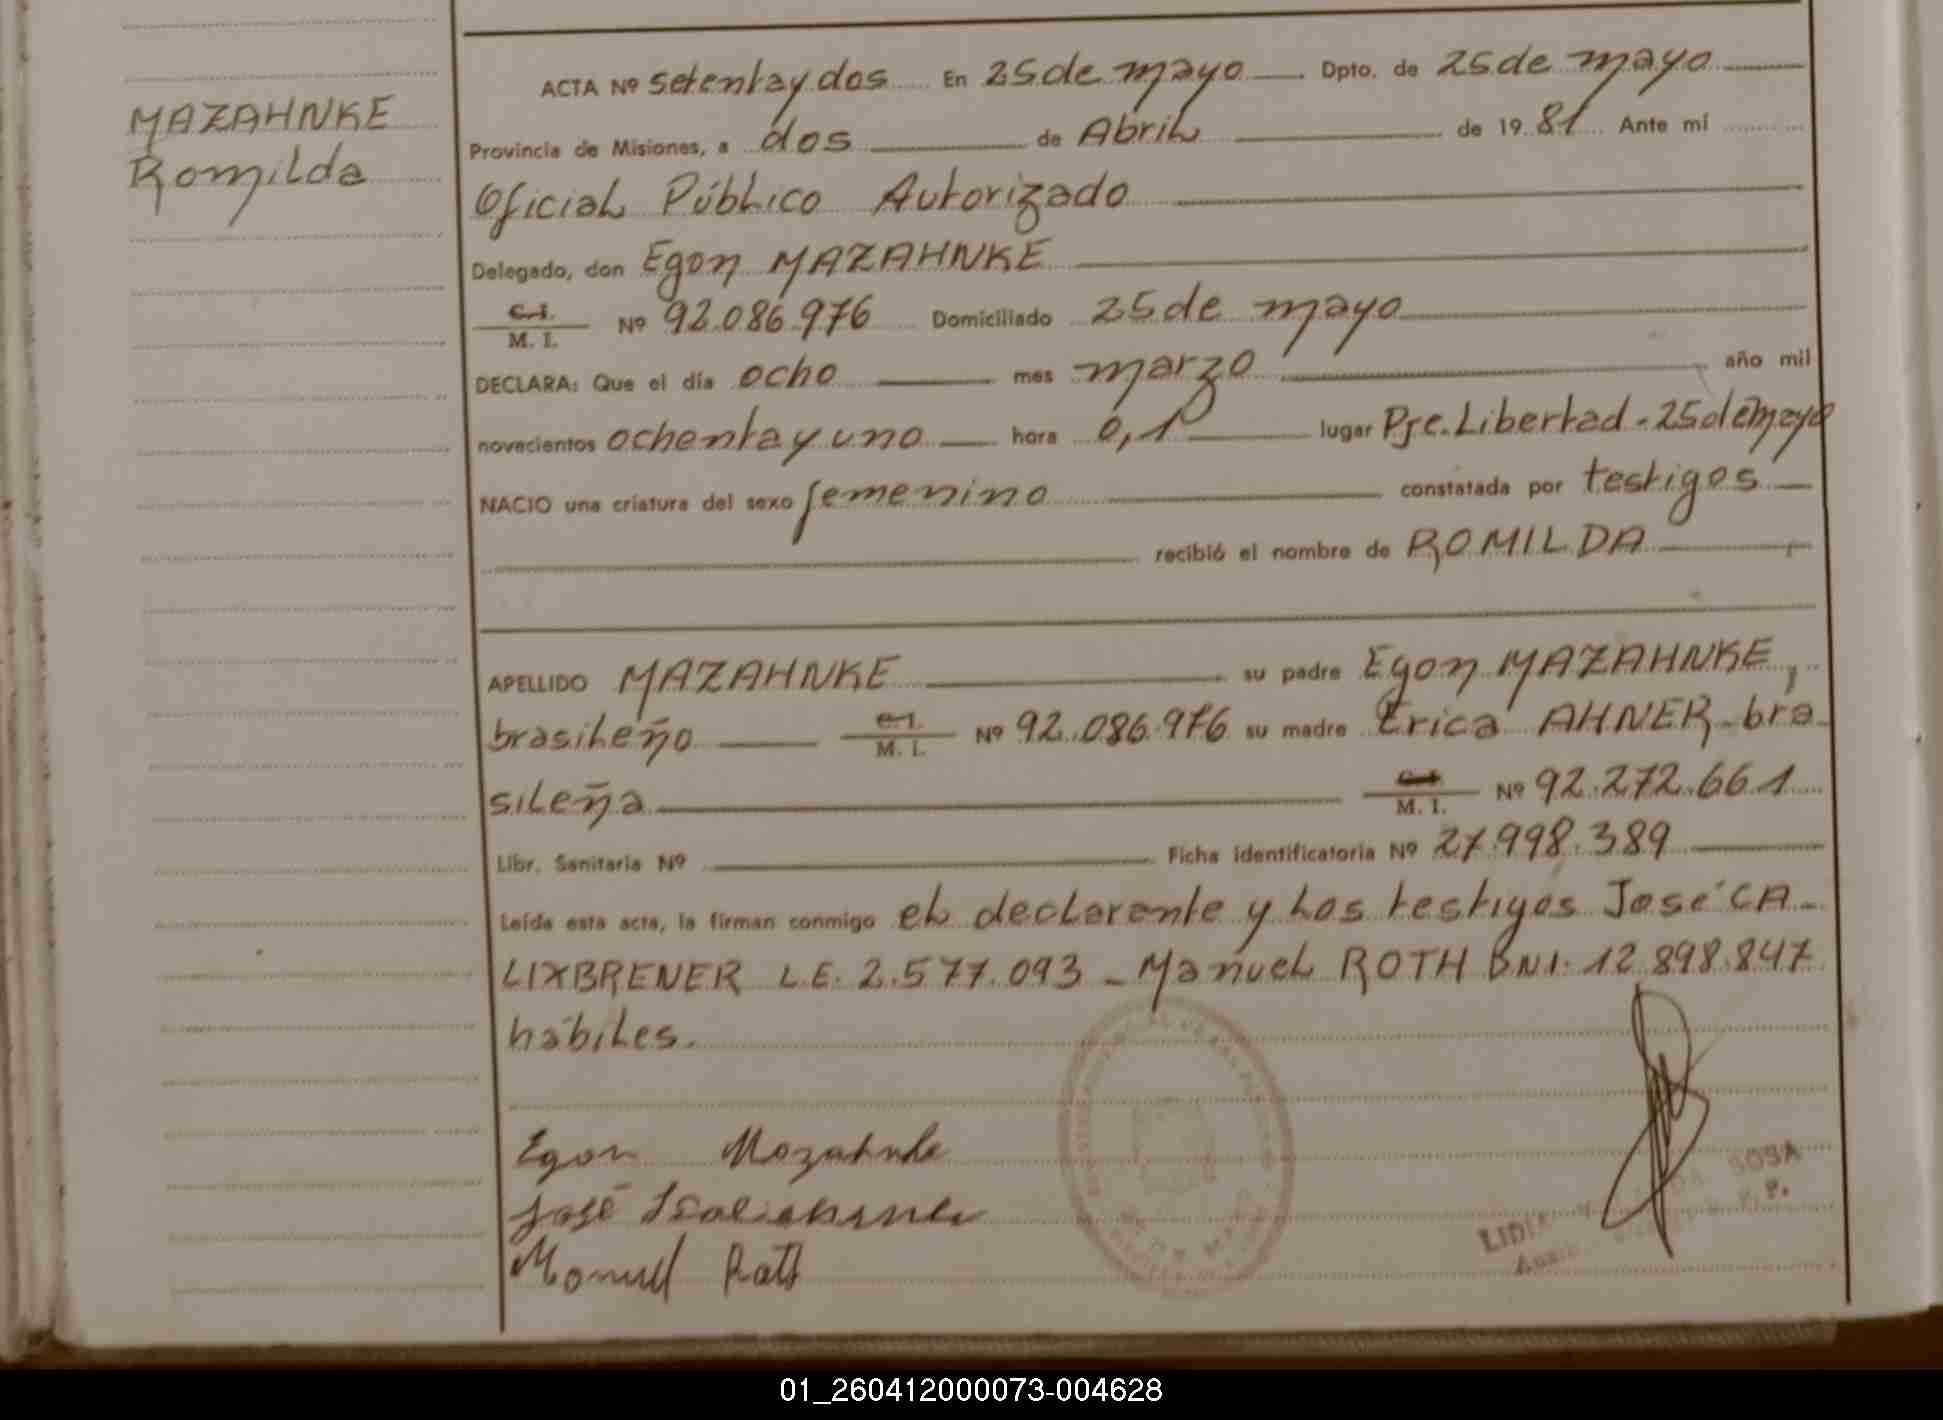 MAZAHNKE
Romilda
ACTA Nº setenta y dos En 25 de mayo Dpto. de 25 de mayo
Provincia de Misiones, a dos de Abril de 1981 Ante mí
Oficial Público Autorizado
Delegado, don Egon MAZAHNKE
C.I.
M. I. Nº 92.086.976 Domiciliado 25 de mayo
DECLARA: Que el día ocho mes marzo año mil
novecientos ochenta y uno hora 0,1 lugar Pje. Libertad - 25 de mayo
NACIO una criatura del sexo femenino constatada por testigos
recibió el nombre de ROMILDA
APELLIDO MAZAHNKE su padre Egon MAZAHNKE,
brasileño C.I. M. I. Nº 92.086.976 su madre Erica AHNER - bra
sileña C.I. M. I. Nº 92.272.661
Libr. Sanitaria Nº Ficha identificatoria Nº 27.998.389
Leída esta acta, la firman conmigo el declarante y los testigos José CA-
LIXBRENER L.E. 2.577.093 - Manuel ROTH DNI. 12.898.847
hábiles.
Egon Mozahnke
José
Manuel Roth
LIDIA SOSA
01_260412000073-004628